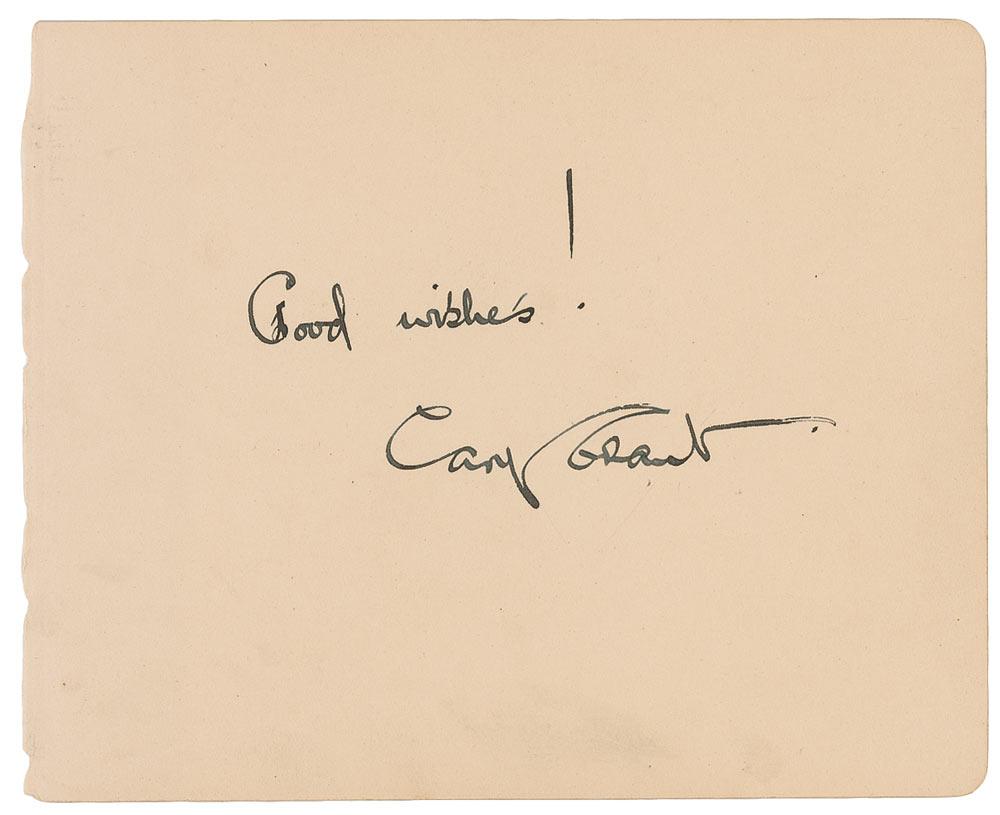 Good wishes!
Cary Grant.